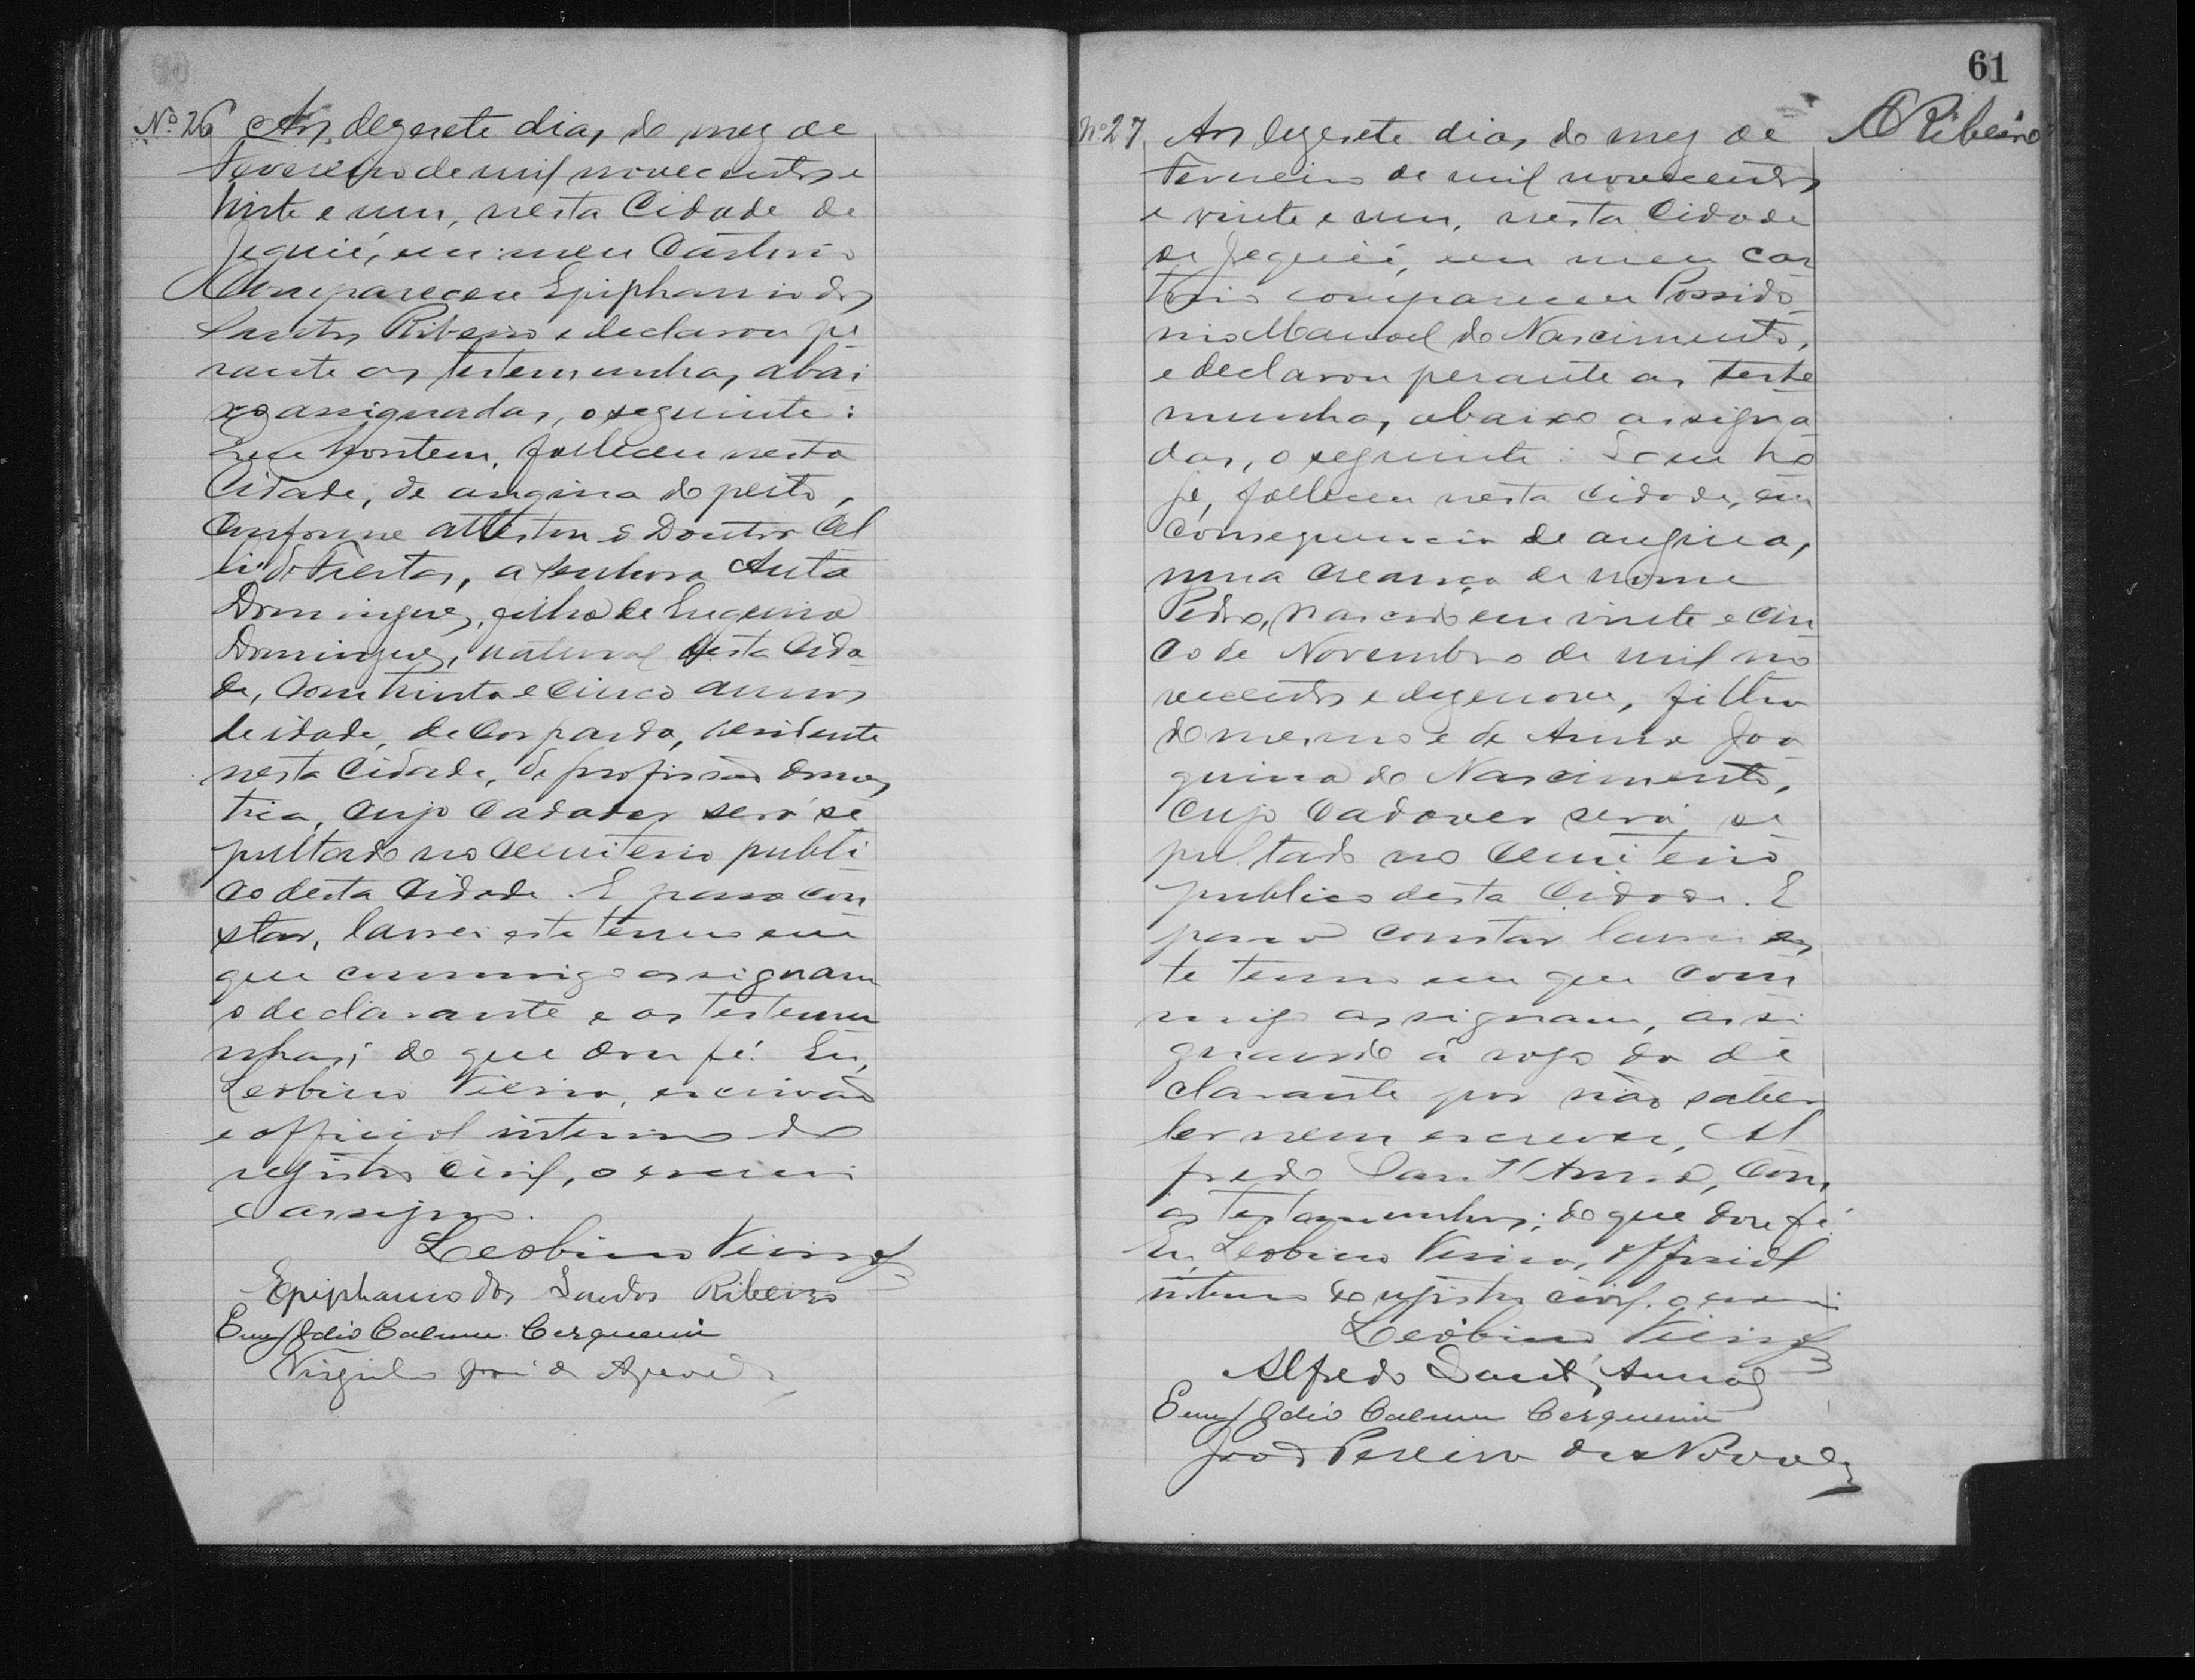 61
ARibeiro
Nº 26 Aos dezesete dias do mez de
Fevereiro de mil novecentos e
vinte e um, nesta Cidade de
Jequié, em meu Cartorio
Compareceu Epiphanio dos
Santos Ribeiro e declarou pe
rante as testemunhas abai
xo assignadas, o seguinte:
Que hontem, falleceu nesta
Cidade, de angina do peito,
Conforme attestou o Doutor Cel
i de Freitas, a senhora Auta
Domingues, filha de Eugenia
Domingues, natural desta Cida
de, Com trinta e cinco annos
de idade, de Cor parda, residente
nesta Cidade, de profissão domes
tica, Cujo Cadaver será se
pultado no Cemiterio publi
co desta Cidade. E para con
star, lavrei este termo em
que commigo assignam
o declarante e as testemu
nhas; do que dou fé. Eu,
Leobino Vieira, escrivão
e official interino do
registro Civil, o escrevi
e assigno.
Leobino Vieira
Epiphanio dos Santos Ribeiro
Emygdio Calmu Cerqueira
Virgilio José de Azevedo
Nº 27 Aos dezesete dias do mez de
Fevereiro de mil novecentos
e vinte e um, nesta Cidade
de Jequié, em meu car
torio compareceu Possido
nio Manoel do Nascimento,
e declarou perante as teste
munhas, abaixo assigna
das, o seguinte: Que ho
je, falleceu nesta Cidade, em
Consequencia de angina,
uma creança de nome
Pedro, nascido em vinte e cin
co de Novembro de mil no
vecentos e dezenove, filho
do mesmo e de Anna Joa
quina do Nascimento,
Cujo Cadaver será se
pultado no Cemiterio
publico desta Cidade. E
para constar lavrei es
te termo em que com
migo assignam, assi
gnando á rogo do de
clarante por não saber
ler nem escrever, Al
fredo Sant'Anna, Com
as testemunhas; do que dou fé.
Eu, Leobino Vieira, Official
interino do registro civil, o escrevi
Leobino Vieira
Alfredo Sant'Anna
Emygdio Calmu Cerqueira
João Pereira de Novaes